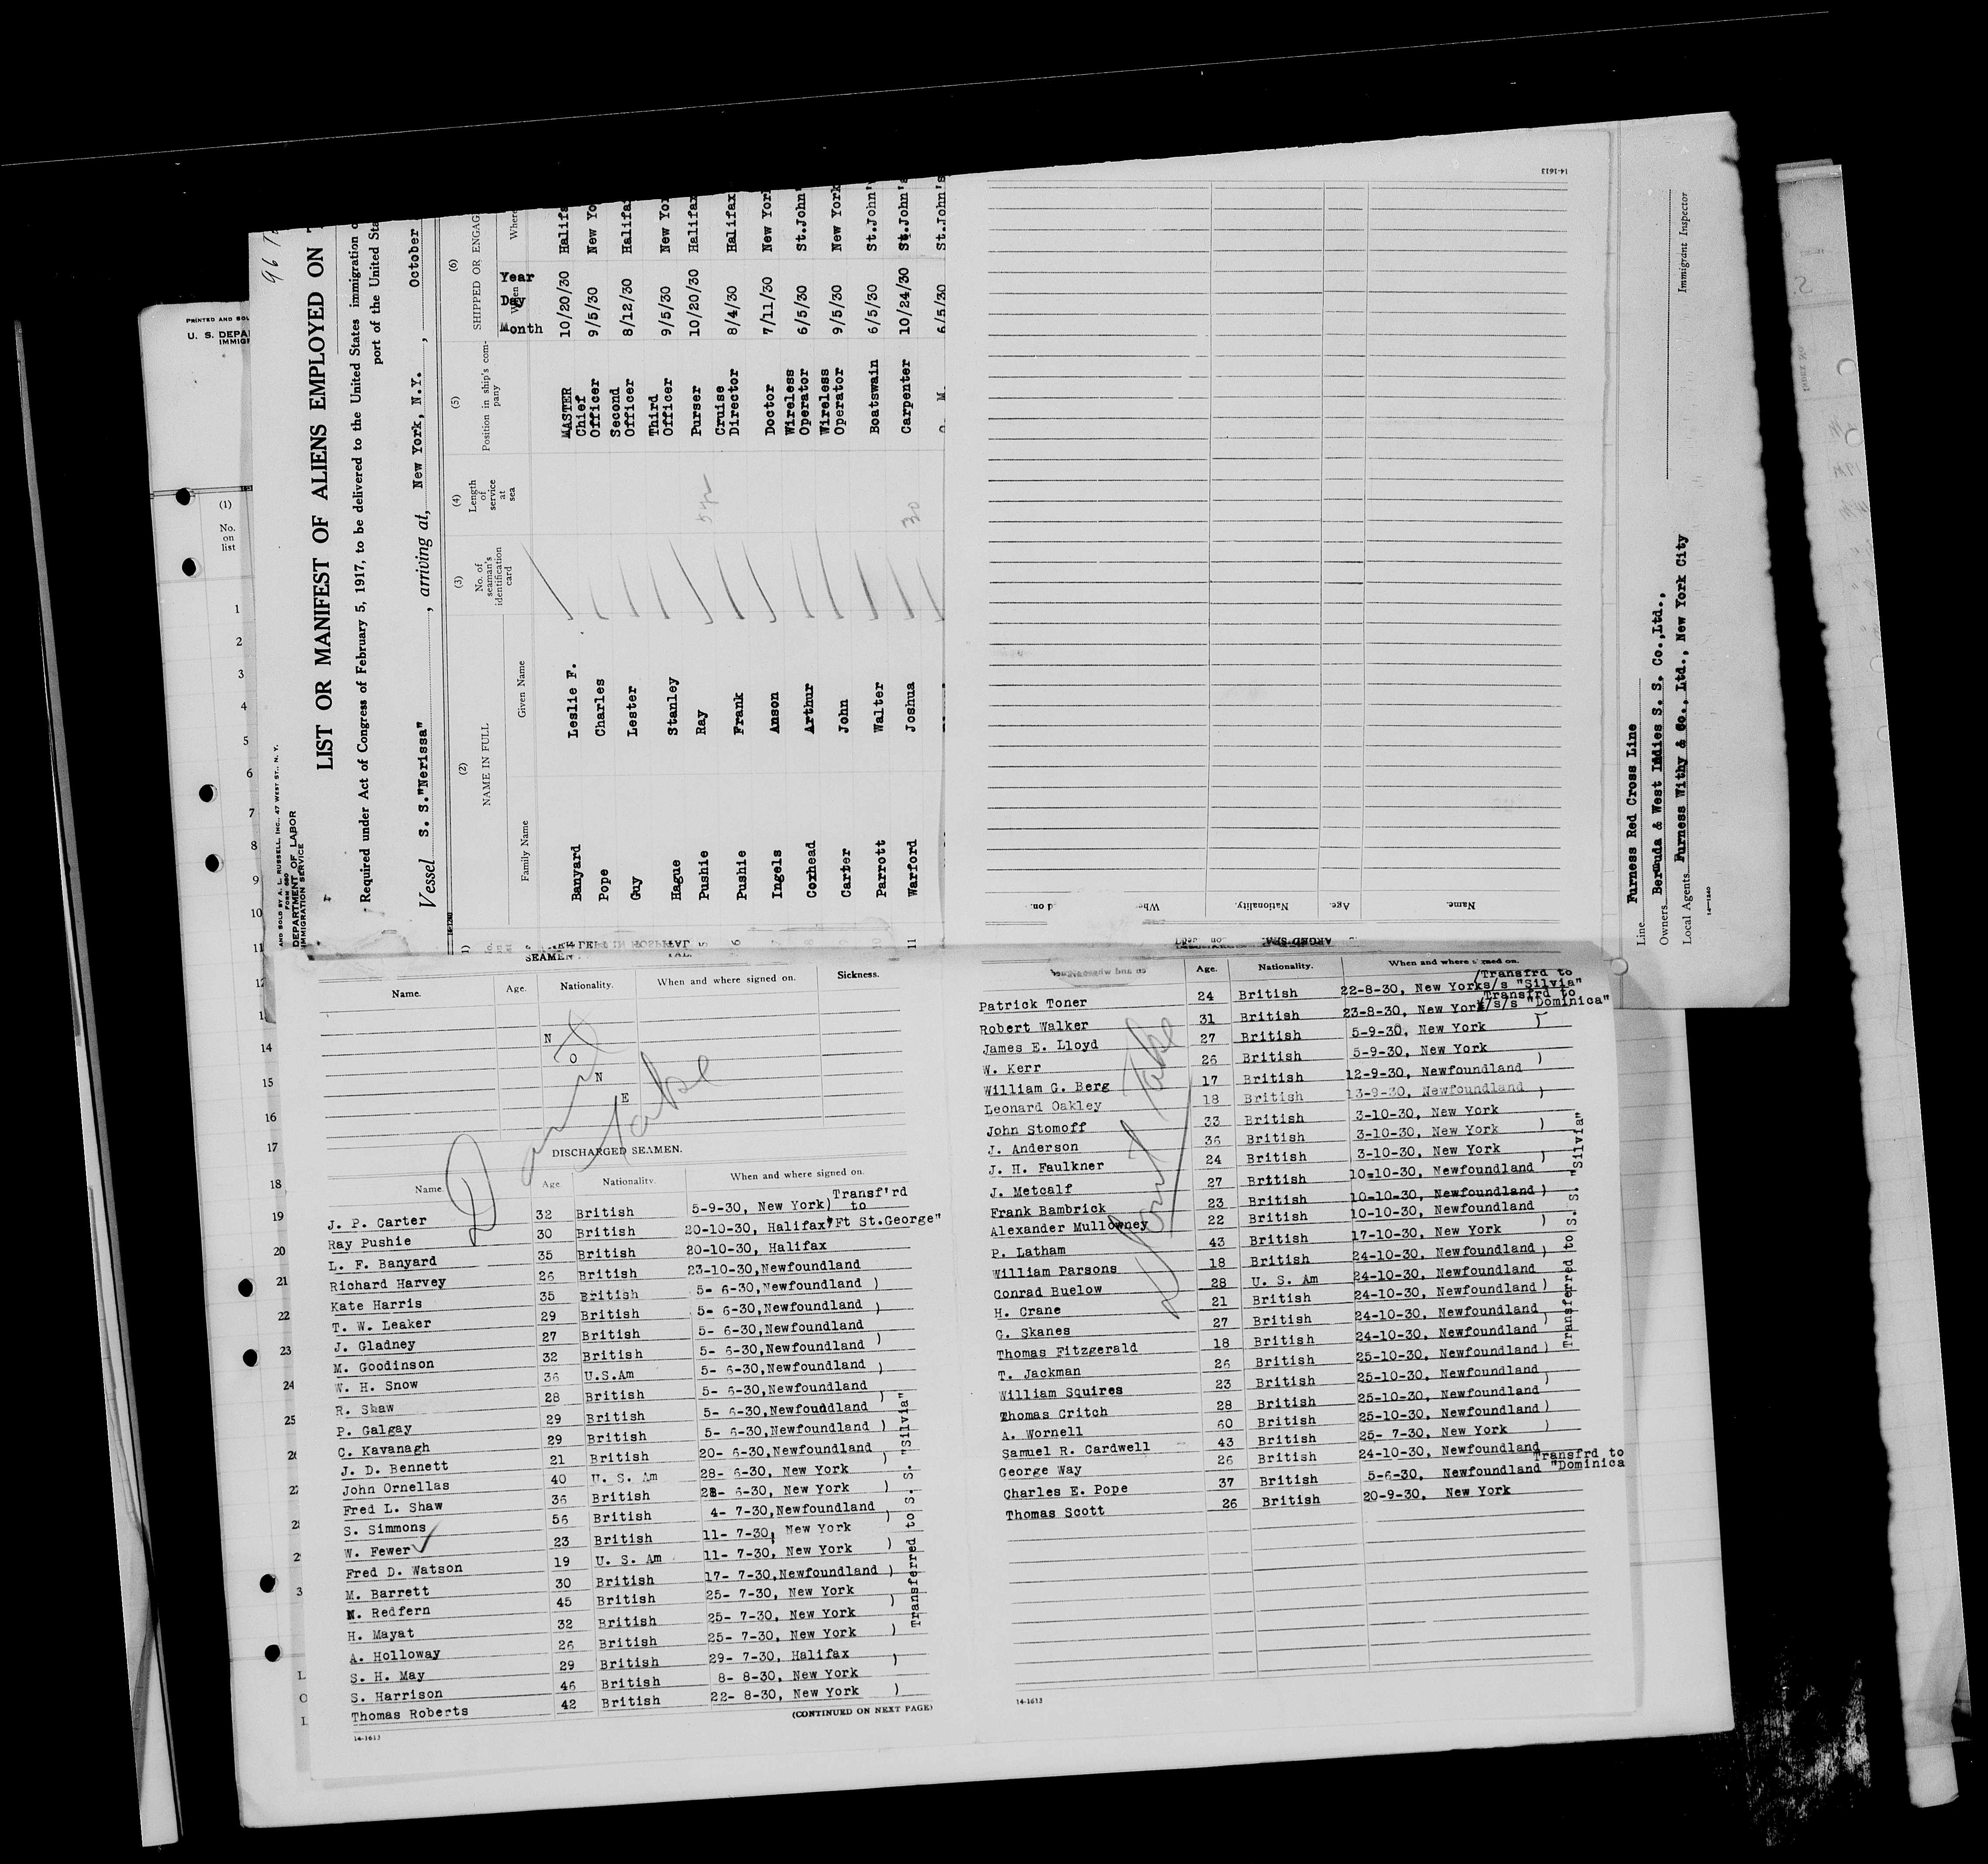 96
LIST OR MANIFEST OF ALIENS EMPLOYED ON
Required under Act of Congress of February 5, 1917, to be delivered to the United States immigration
port of the United
Vessel S. S."Nerissa", arriving at, New York, N.Y., October
AND SOLD BY A. L. RUSSELL, INC., 47 WEST ST., N. Y.
FORM 680
DEPARTMENT OF LABOR
IMMIGRATION SERVICE
(2) NAME IN FULL
Family Name Given Name
(3) No. of seaman's identification card
(4) Length of service at sea
(5) Position in ship's company
(6) SHIPPED OR
When
Month Day Year
Banyard Leslie F. MASTER 10/20/30
Pope Charles Chief Officer 9/5/30 New
Guy Lester Second Officer 8/12/30
Hague Stanley Third Officer 9/5/30 New
Pushie Ray Purser 10/20/30 Halifax
Pushie Frank Cruise Director 8/4/30 Halifax
Ingels Anson Doctor 7/11/30 New
Coxhead Arthur Wireless Operator 6/5/30 St.John'
Carter John Wireless Operator 9/5/30 New York
Parrott Walter Boatswain 6/5/30 St.John'
11 Warford Joshua 30 Carpenter 10/24/30 St.John's
6/5/30 St.John's
PRINTED AND
U. S.
(1)
No. on list
1
2
3
4
5
6
7
8
9
10
11
12
14
15
16
17
18
19
20
21
22
23
24
25
14-1613
Name. Age. Nationality.
Line Furness Red Cross Line
Owners Bermuda & West Indies S. S. Co.,Ltd.,
Local Agents Furness Withy & Co., Ltd., New York City
Immigrant Inspector
14-1240
SEAMEN LEFT IN HOSPITAL
Name. Age. Nationality. When and where signed on. Sickness.
N
O
N
E
Dont take
DISCHARGED SEAMEN.
Name. Age. Nationality. When and where signed on.
J. P. Carter 32 British 5-9-30, New York) Transf'rd to
Ray Pushie 30 British 20-10-30, Halifax) "Ft St.George"
L. F. Banyard 35 British 20-10-30, Halifax
Richard Harvey 26 British 23-10-30,Newfoundland
Kate Harris 35 British 5- 6-30,Newfoundland )
T. W. Leaker 29 British 5- 6-30,Newfoundland )
J. Gladney 27 British 5- 6-30,Newfoundland
M. Goodinson 32 British 5- 6-30,Newfoundland )
W. H. Snow 36 U.S.Am 5- 6-30,Newfoundland )
R. Shaw 28 British 5- 6-30,Newfoundland
P. Galgay 29 British 5- 6-30,Newfoundland )
C. Kavanagh 29 British 5- 6-30,Newfoundland )
J. D. Bennett 21 British 20- 6-30,Newfoundland
John Ornellas 40 U. S. Am 28- 6-30, New York )
Fred L. Shaw 36 British 28- 6-30, New York )
S. Simmons 56 British 4- 7-30,Newfoundland
W. Fewer 23 British 11- 7-30, New York )
Fred D. Watson 19 U. S. Am 11- 7-30, New York )
M. Barrett 30 British 17- 7-30,Newfoundland )
N. Redfern 45 British 25- 7-30, New York
H. Mayat 32 British 25- 7-30, New York )
A. Holloway 26 British 25- 7-30, New York )
S. H. May 29 British 29- 7-30, Halifax
S. Harrison 46 British 8- 8-30, New York )
Thomas Roberts 42 British 22- 8-30, New York )
Transferred to S. S. "Silvia"
(CONTINUED ON NEXT PAGE)
14-1613
Age. Nationality. When and where signed on.
Patrick Toner 24 British 22-8-30, New York /Transfrd to s/s "Silvia"
Robert Walker 31 British 23-8-30, New York Transfrd to /s/s "Dominica"
James E. Lloyd 27 British 5-9-30, New York )
W. Kerr 26 British 5-9-30, New York
William G. Berg 17 British 12-9-30, Newfoundland )
Leonard Oakley 18 British 13-9-30, Newfoundland )
John Stomoff 33 British 3-10-30, New York
J. Anderson 36 British 3-10-30, New York )
J. H. Faulkner 24 British 3-10-30, New York
J. Metcalf 27 British 10-10-30, Newfoundland )
Frank Bambrick 23 British 10-10-30, Newfoundland )
Alexander Mullowney 22 British 10-10-30, Newfoundland
P. Latham 43 British 17-10-30, New York )
William Parsons 18 British 24-10-30, Newfoundland )
Conrad Buelow 28 U. S. Am 24-10-30, Newfoundland
H. Crane 21 British 24-10-30, Newfoundland )
G. Skanes 27 British 24-10-30, Newfoundland )
Thomas Fitzgerald 18 British 24-10-30, Newfoundland
T. Jackman 26 British 25-10-30, Newfoundland )
William Squires 23 British 25-10-30, Newfoundland
Thomas Critch 28 British 25-10-30, Newfoundland )
A. Wornell 60 British 25-10-30, Newfoundland )
Samuel R. Cardwell 43 British 25- 7-30, New York )
George Way 26 British 24-10-30, Newfoundland
Charles E. Pope 37 British 5-6-30, Newfoundland Transfrd to "Dominica
Thomas Scott 26 British 20-9-30, New York
Transferred to S. S. "Silvia"
Dont Take
14-1613